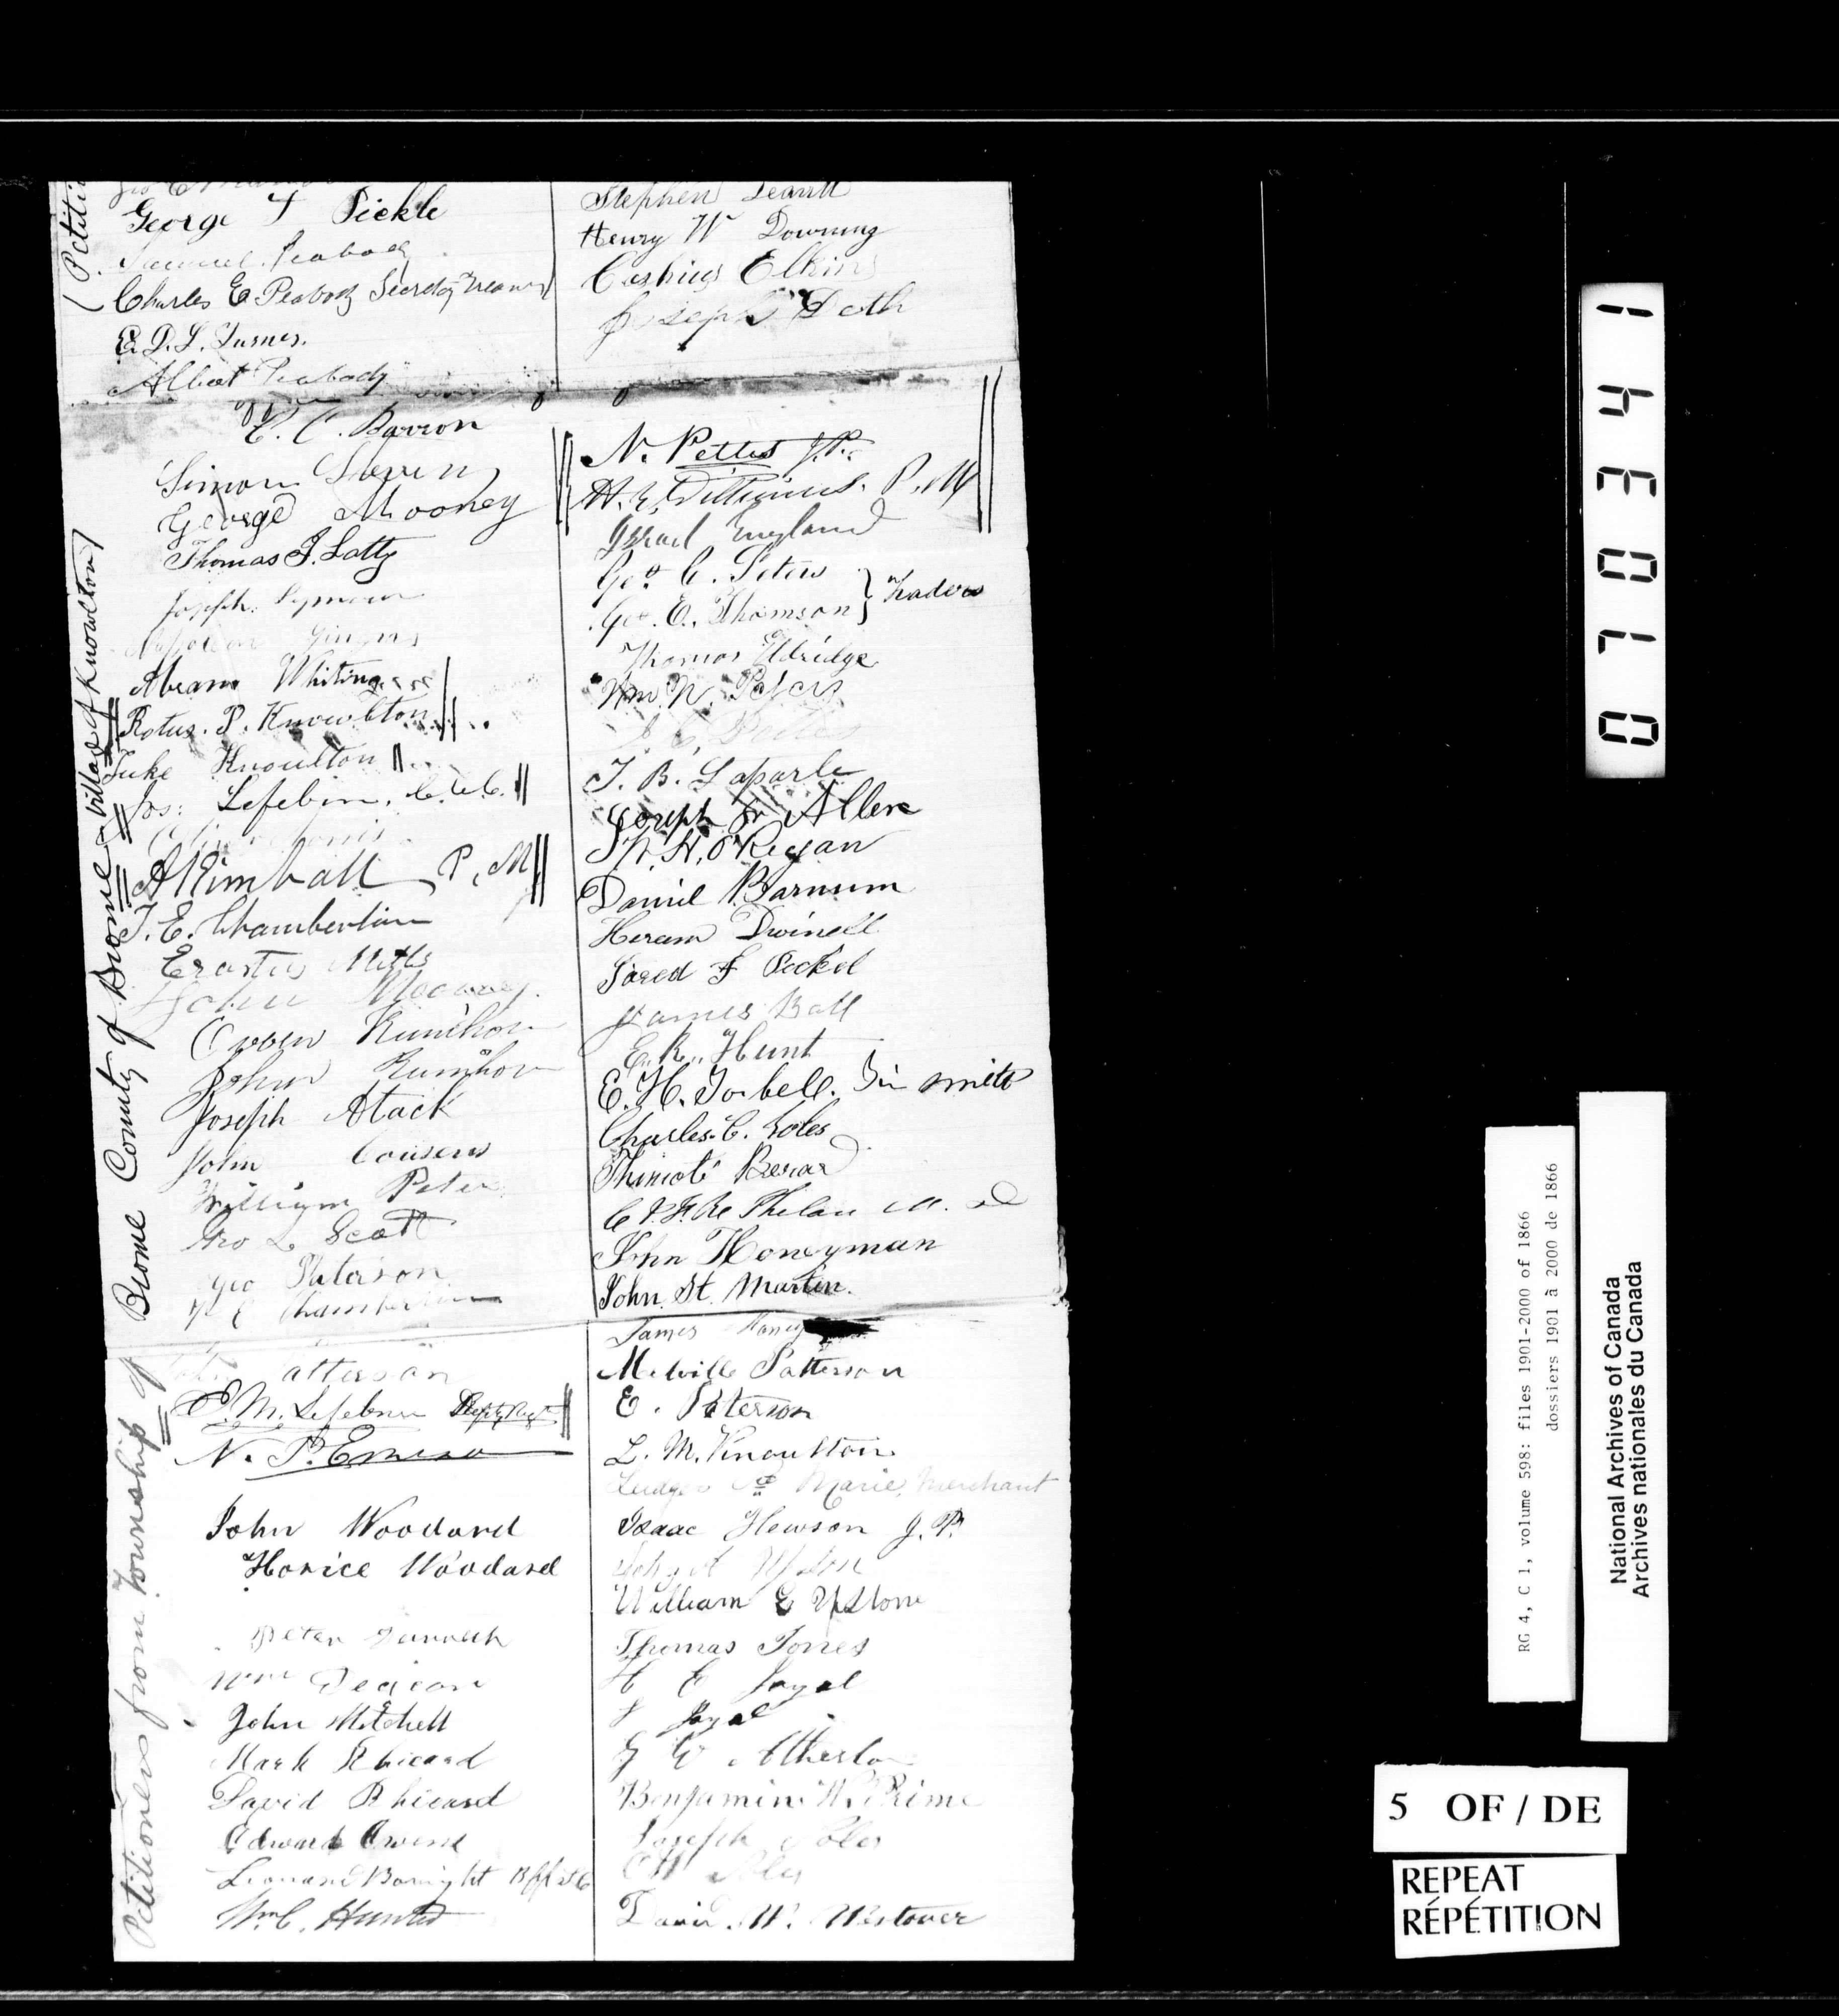 George F Pickle
Samuel Peabody
Charles E Peabody Secretary Treasurer
E. D. L. Turner.
Albert Peabody
E. C. Barron
Simon
George Mooney
Thomas J. Latty
Joseph. Seymour
Napoleon
Abram Whiting
Rotus. P. Knowlton
Luke Knoulton
Jos: Lefebvre, C.C.C.
A Kimball P, M
T. E. Chamberlin
Erastus Mills
John Mooney.
Owen
John
Joseph Stack
John Cousens
William Peter
Geo L Scott
Geo Paterson
Chamberlin
Patterson
E. M. Lefebvre Depty Regr
N. P. Emers
John Woodard
Horice Woodard
Peter
Wm
John Mitchell
Mark Rhicard
David Rhicard
Edward Owens
Leonard Boright
Wm C. Hunter
Stephen Leavitt
Henry W Downing
Cashius Elkins
Joseph
N. Pettes J.P.
H. E. Williams. P. M
Israel England
Geo C. Peters
Geo. E. Thomson } Traders
Thomas Eldridge
Wm. N. Peters
J. C. Pettes
J. B. Laparle
Joseph Jr Allen
W. H, O'Regan
Daniel Barnum
Heram Dwinell
Jared F Pickel
James Ball
E. R. Hunt
E. H. Torbell. Tin smith
Charles. C. Soles
Thimoté Berard
C P. F. Re Phelan M. D
John Honeyman
John St. Martin.
James Haney
Melville Patterson
E. Paterson
L. M. Knoulton
Ludger Ste Marie, Merchant
Isaac Hewson J. P.
William E Upstone
Thomas Jones
H E Joyal
J Joyal
Atherton
Benjamin W. Prime
Joseph Soles
Soles
David. W. Westover
Petitioners from Township of Brome County of Brome & Village of Knowlton)
(Petiti
0 7 0 3 4 1
RG 4, C 1, volume 598: files 1901-2000 of 1866
dossiers 1901 à 2000 de 1866
National Archives of Canada
Archives nationales du Canada
5 OF / DE
REPEAT
RÉPÉTITION